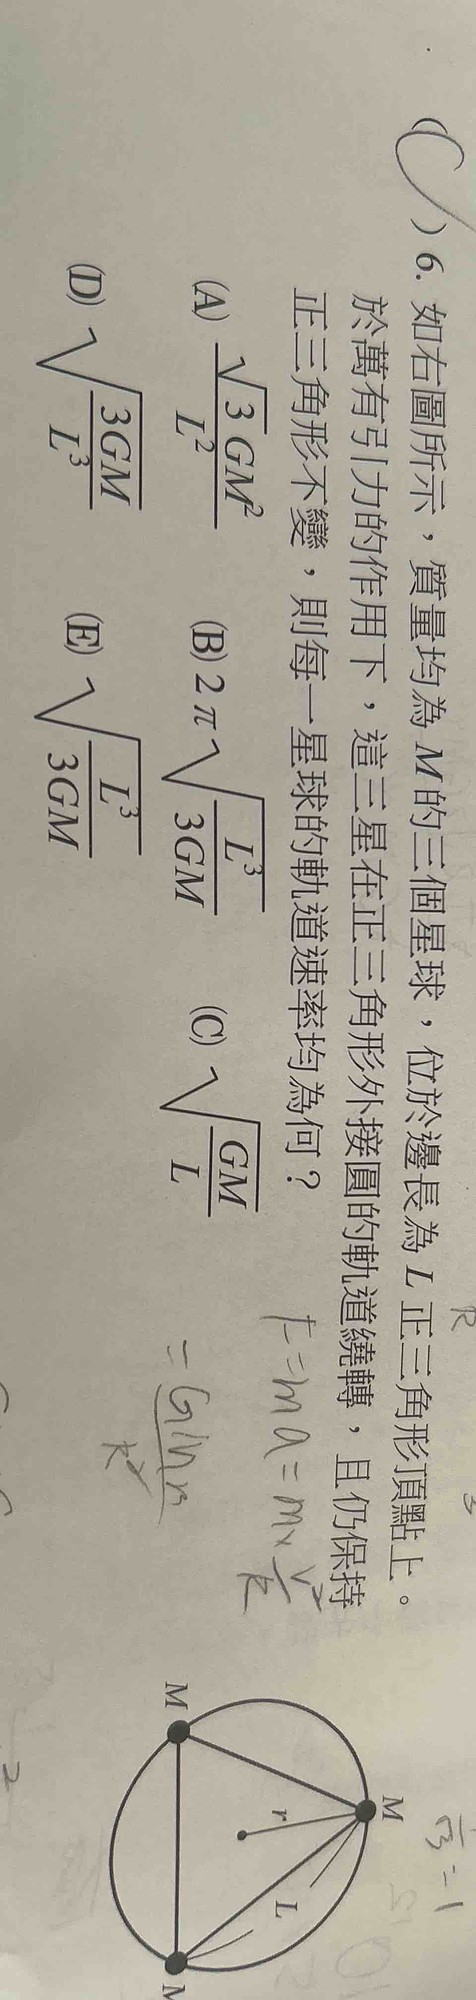 (C) 6. 如右圖所示，質量均為 M 的三個星球，位於邊長為 L 正三角形頂點上。
於萬有引力的作用下，這三星在正三角形外接圓的軌道繞轉，且仍保持
正三角形不變，則每一星球的軌道速率均為何？
(A) √3 GM² / L² (B) 2π√(L³ / 3GM) (C) √(GM / L)
(D) √(3GM / L³) (E) √(L³ / 3GM)
F = ma = m × v² / R
M
r
L
M
M